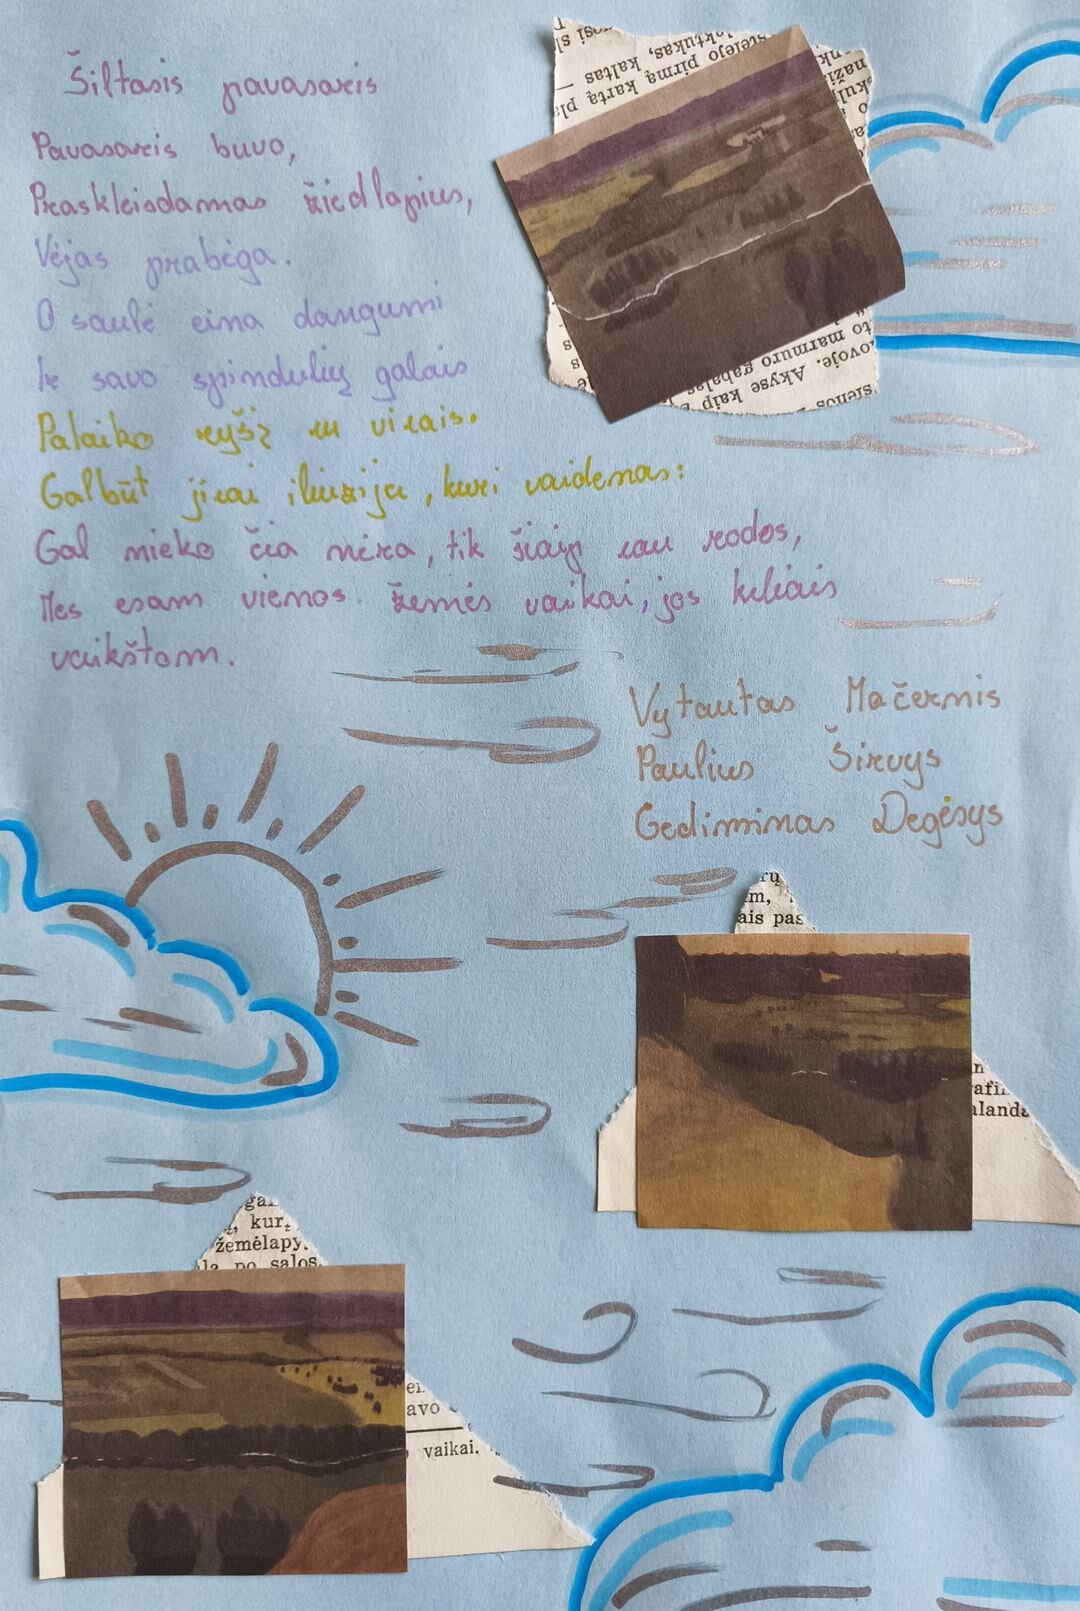 Šiltasis pavasaris
Pavasaris buvo,
Praskleisdamas žiedlapius,
Vėjas prabėga.
O saulė eina dangumi
Ir savo spindulių galais
Palaiko ryšį su virais.
Galbūt jinai iliuzija, kuri vaidenas:
Gal nieko čia nėra, tik šiaip sau rodos,
Mes esam vienos žemės vaikai, jos keliais
vaikštom.
Vytautas Mačernis
Paulius Širvys
Gediminas Degėsys
stelėjo pirmą kartą
kaltas
to marmuro gabalas
ovoje. Akyse kaip
rų
ais pas
afi
alanda
ga
, kur
žemėlapy.
la po salos
avo
vaikai.